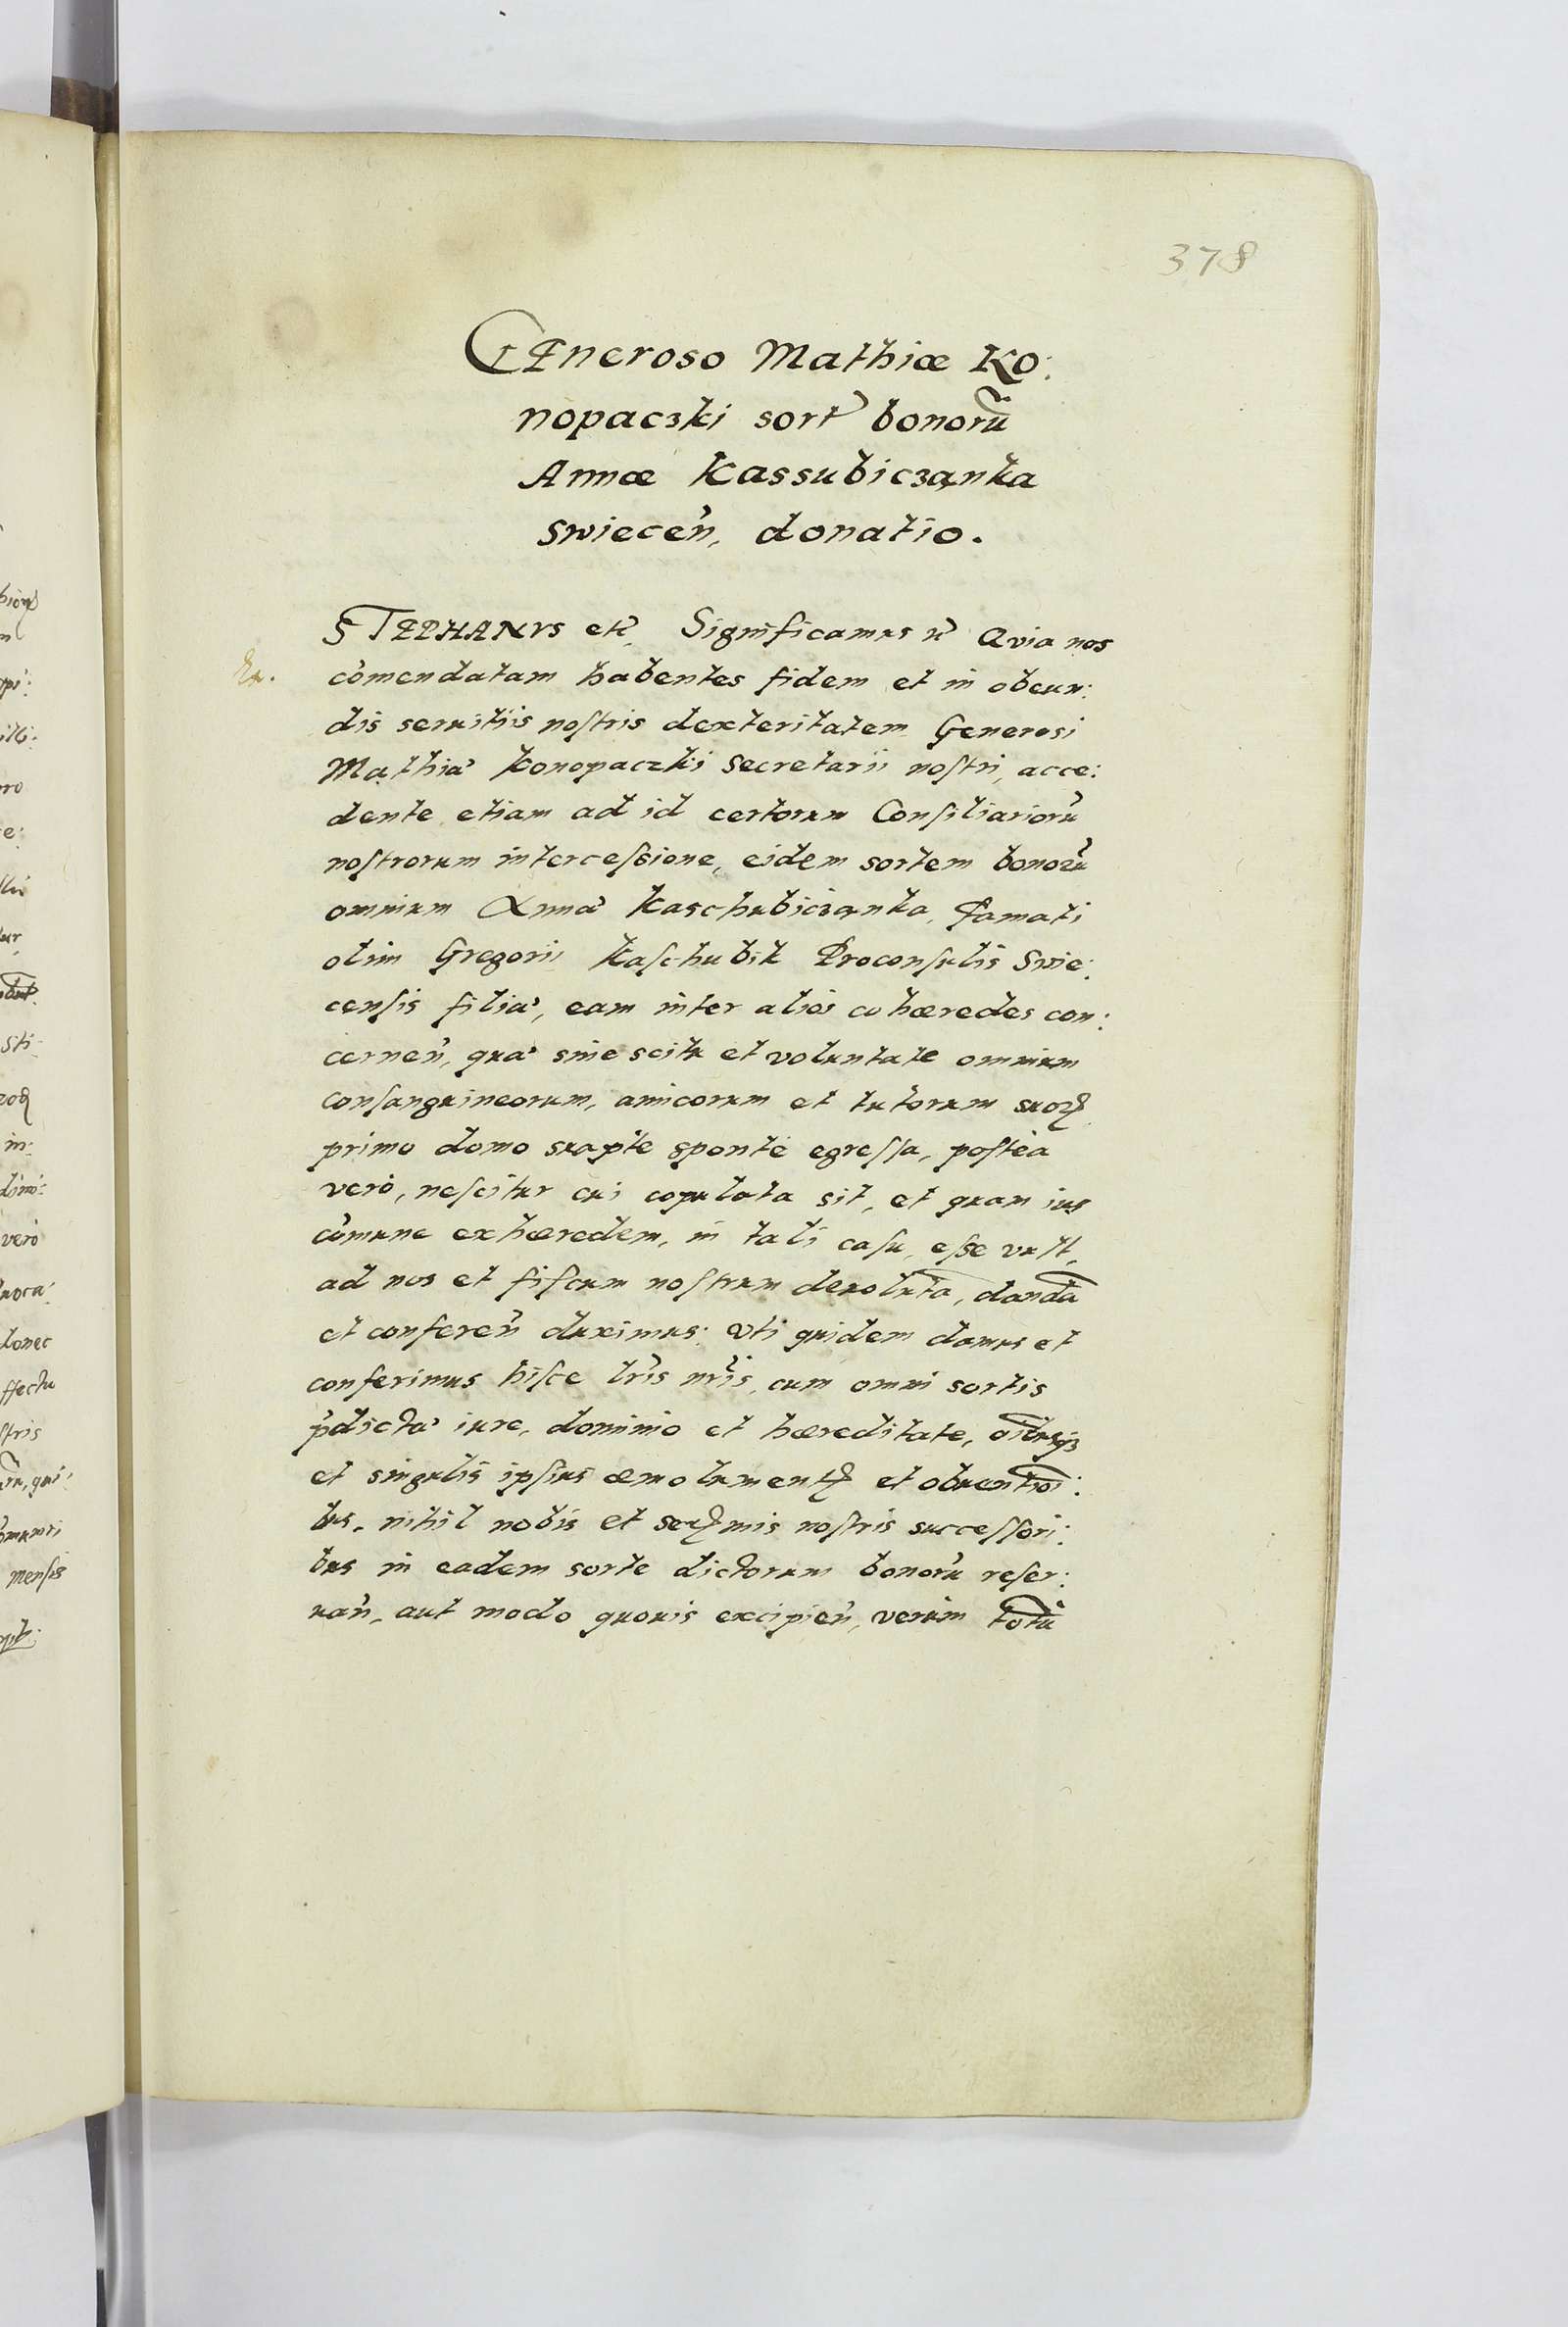 378
GEneroso Mathiæ Ko:
nopaczki sort bonorũ
Annæ Kassubiczanka
Swiecen̄, donatio.
STEPHANVS etc̃ Significamus &c̃ Qvia nos
Ex.
com̄endatam habentes fidem et in obeun:
dis seruitiis nostris dexteritatem Generosi
Mathiæ Konopaczki Secretarii nostri, acce:
dente etiam ad id certorum Consiliariorũ
nostrorum intercessione, eidem sortem bonorũ
omnium Annæ Kaschubiczanka, famati
olim Gregorii Kaschubik Proconsulis Swie:
censis filiæ, eam inter alios cohæredes con:
cernen̄, quæ sine scitu et voluntate omnium
consanguineorum, amicorum et tutorum suorꝝ
primo domo suapte sponte egressa, postea
verò, nescitur cui copulata sit, et quam ius
com̄une exhæredem, in tali casu, esse vult,
ad nos et fiscum nostrum deuolutã, dandã
et conferen̄ duximus. Vti quidem damus et
conferimus hisce lr̃is nr̃is, cum omni sortis
p̃dictæ iure, dominio et hæreditate, oĩbusqꝫ
et singulis ipsius æmolumentꝭ et obuentioĩ:
bus, nihil nobis et serꝭmis nostris successori:
bus in eadem sorte dictorum bonorũ reser:
uan̄, aut modo quouis excipien̄, verùm totũ